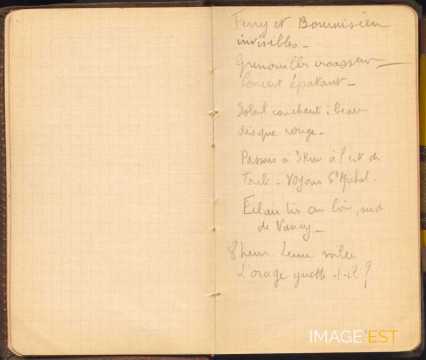 Ferry et Bournisien
invisibles -
Grenouilles croassent -
Concert épatant -
Soleil couchant : beau
disque rouge -
Passons à 3 Km à l'est de
Toul - Voyons St Michel.
Eclairs au loin, sud
de Nancy -
8 heures Lune voilée
L'orage guette-t-il ?
IMAGE'EST